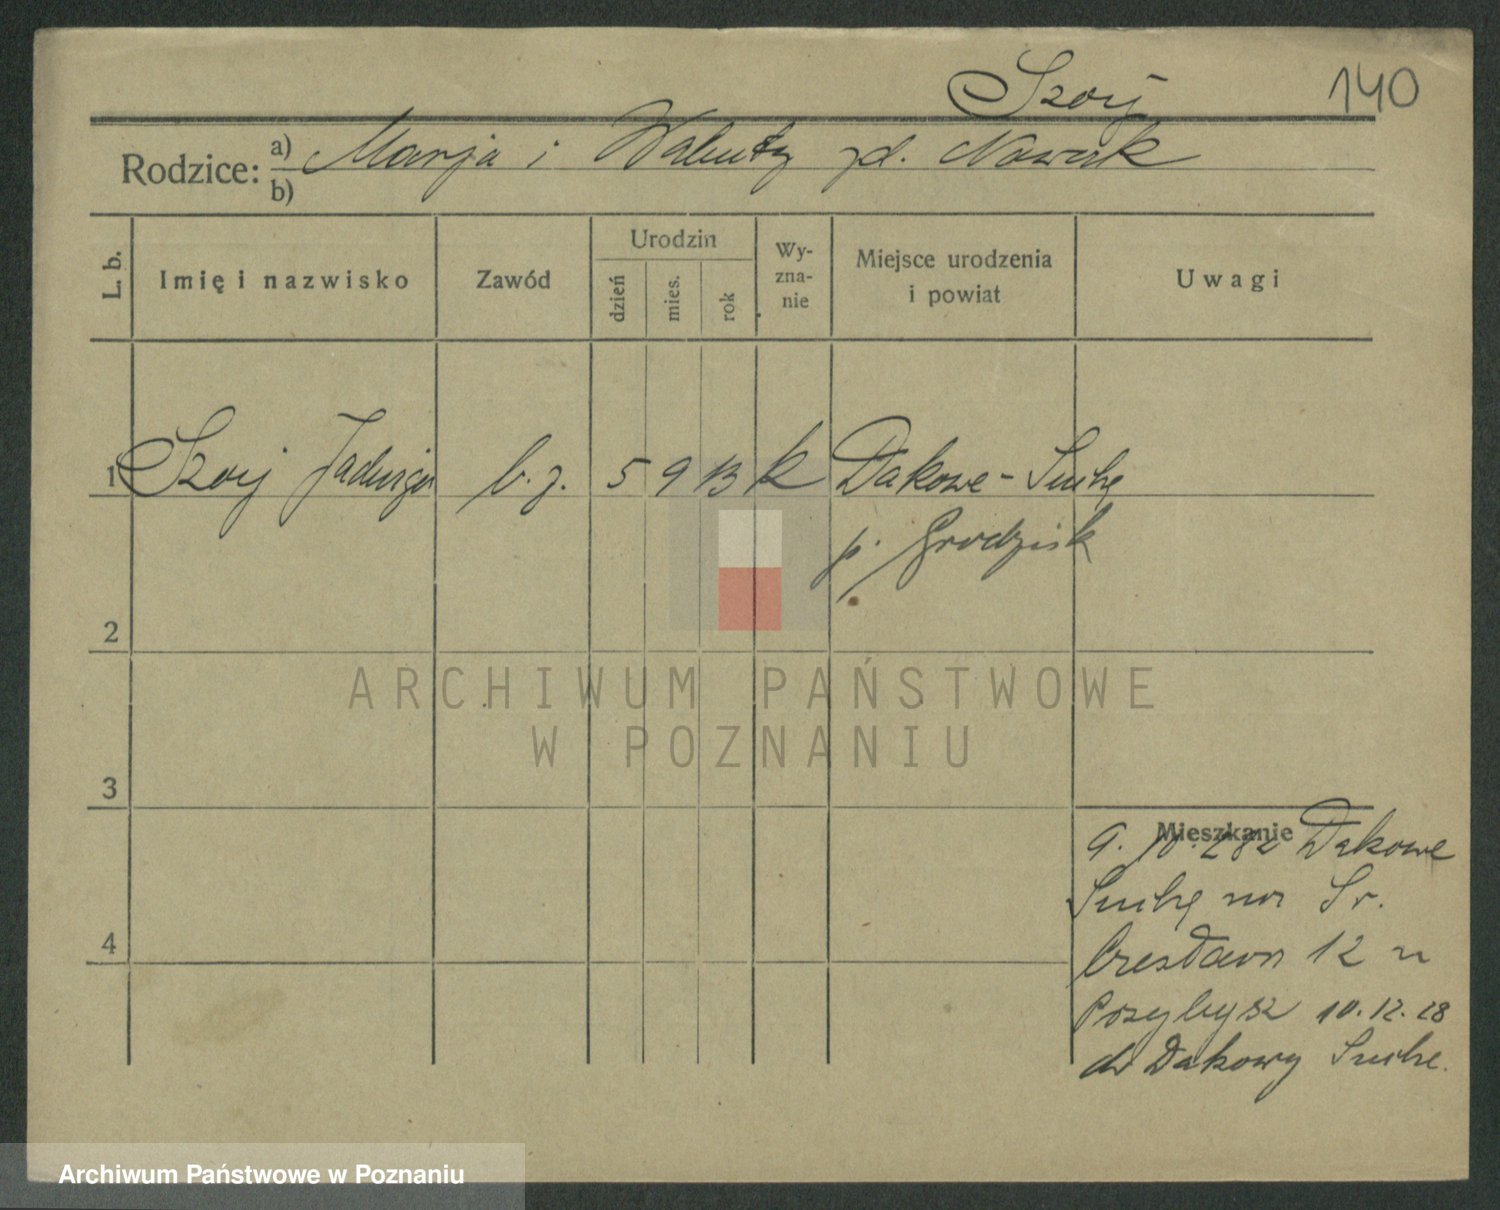 Szoij 140
Rodzice: a) Marja i Walenty zd. Nowak
b)
L. b. Imię i nazwisko Zawód Urodzin dzień mies. rok Wy-zna-nie Miejsce urodzenia i powiat Uwagi
1 Szoij Jadwiga b. z. 5 9 13 k Dakowe-Suche
p. Grodzisk
2
ARCHIWUM PAŃSTWOWE
W POZNANIU
3
Mieszkanie
9. 10. 282 Dakowe
Suche na Św.
Czesława 12 u
Przybysz 10.12.28
do Dakowy Suche.
4
Archiwum Państwowe w Poznaniu